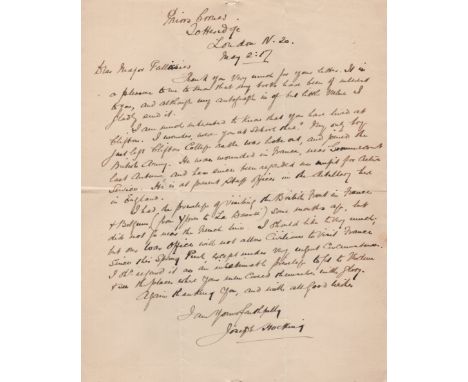 Priors Corner
Totteridge
London N. 20.
May 2: 17
Dear Major
Thank you very much for your letter. It is
a pleasure to me to know that my books have been of interest
to you, and although my autograph is of but little value I
gladly send it.
I am much interested to know that you have lived at
Clifton. I wonder were you at School there? My only boy
just left Clifton College
British Army. He was wounded in France, near
last Autumn, and has since been regarded as unfit for active
Service. He is at present Staff officer in the Artillery
in England.
I had the privilege of visiting the British Front in France
& Belgium (from Ypres to La Bassée) some months ago, but
did not go near the French line. I should like to very much,
but our War Office will not allow Civilians to visit France
since this Spring Push, except under very urgent Circumstances.
I shd regard it as an inestimable privilege to go to
& see the place where your men covered themselves with glory.
Again thanking you, and with all good wishes
I am Yours faithfully
Joseph Hocking